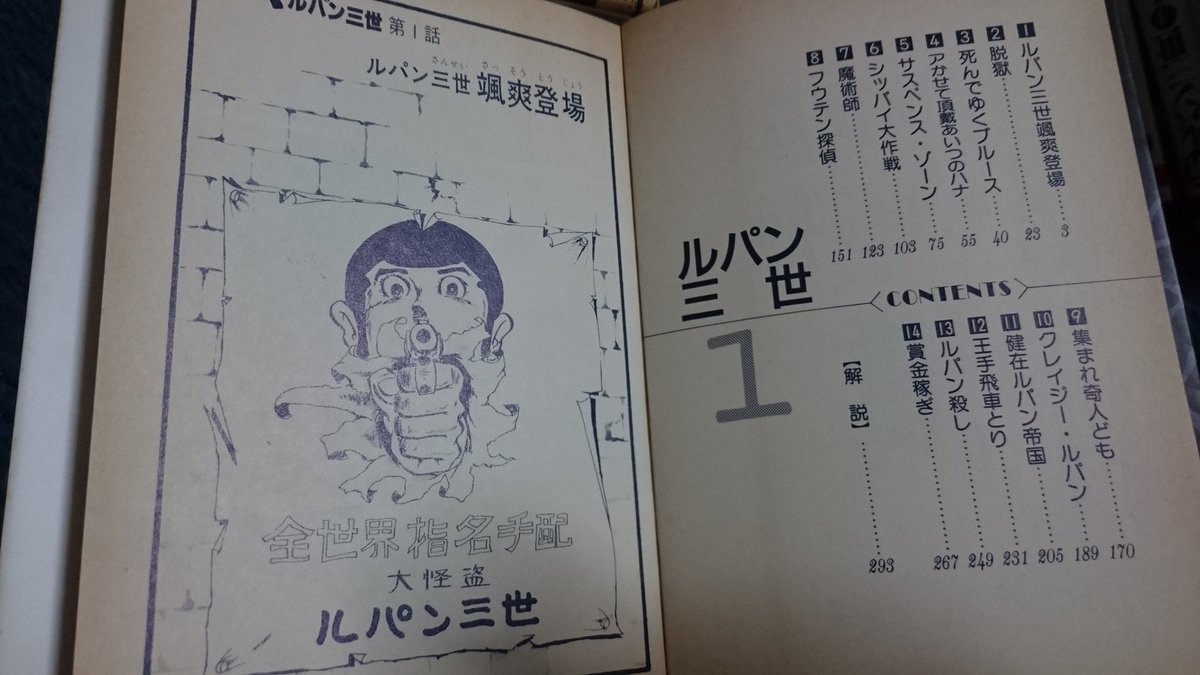 ルパン三世
1
CONTENTS
1 ルパン三世颯爽登場 3
2 脱獄 23
3 死んでゆくブルース 40
4 アかせて頂戴あいつのハナ 55
5 サスペンス・ゾーン 75
6 シッパイ大作戦 103
7 魔術師 123
8 フウテン探偵 151
9 集まれ奇人ども 170
10 クレイジー・ルパン 189
11 健在ルパン帝国 205
12 王手飛車とり 231
13 ルパン殺し 249
14 賞金稼ぎ 267
【解説】 293
ルパン三世 第1話
ルパン三世颯爽登場
さんせい さっそうとうじょう
全世界指名手配
大怪盗
ルパン三世